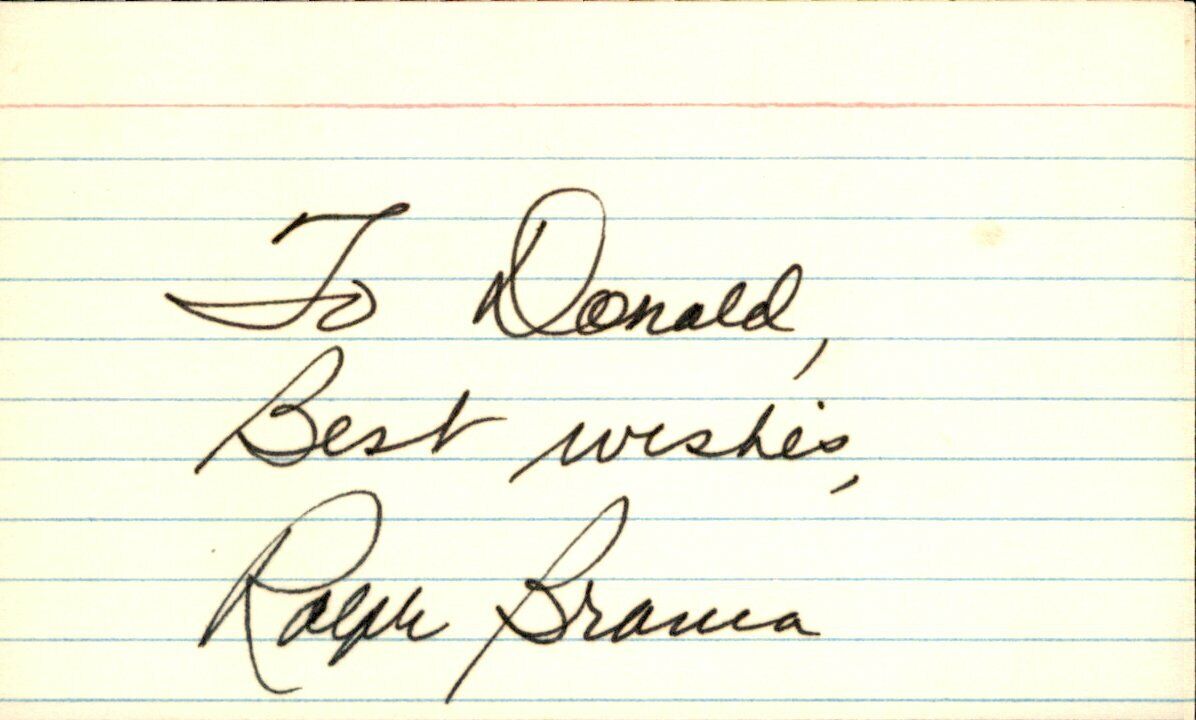 To Donald,
Best wishes,
Ralph Branca